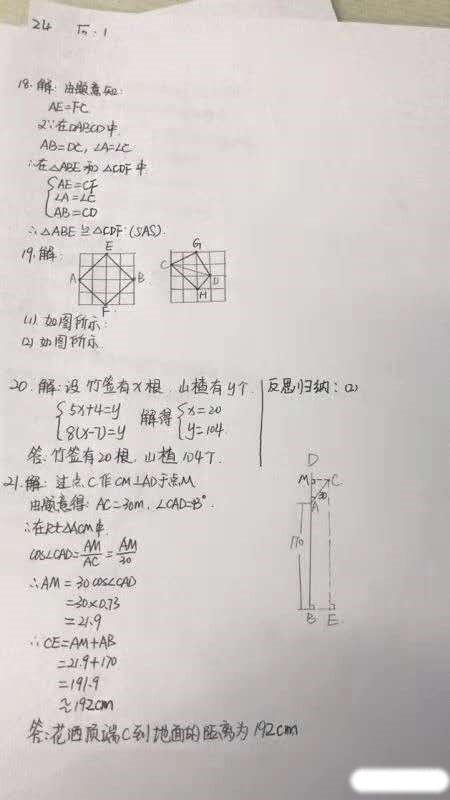 24 T5.1
18.解:由题意知:
AE=FC
又∵在▱ABCD中
AB=DC,∠A=∠C
∴在△ABE和△CDF中
AE=CF
∠A=∠C
AB=CD
∴△ABE≌△CDF(SAS).
19.解:
E
A B
F
G
C D
H
(1).如图所示:
(2).如图所示.
20.解:设竹签有x根,山楂有y个.
5x+4=y
8(x-7)=y
解得
x=20
y=104.
答:竹签有20根,山楂104个.
反思归纳:(2)
21.解:过点C作CM⊥AD于点M
由题意得:AC=30m,∠CAD=43°.
∴在Rt△ACM中.
cos∠CAD=AM/AC=AM/30
∴AM=30cos∠CAD
=30×0.73
=21.9
∴CE=AM+AB
=21.9+170
=191.9
≈192cm
答:花洒顶端C到地面的距离为192cm
D
M C
30
A
170
B E